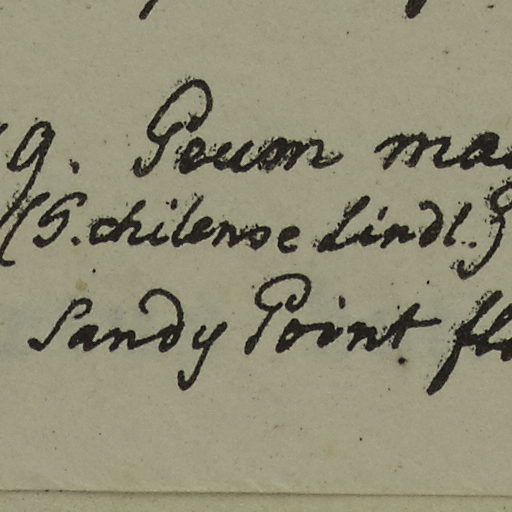 9. Geum ma
(G. chilense Lindl.)
Sandy Point flo